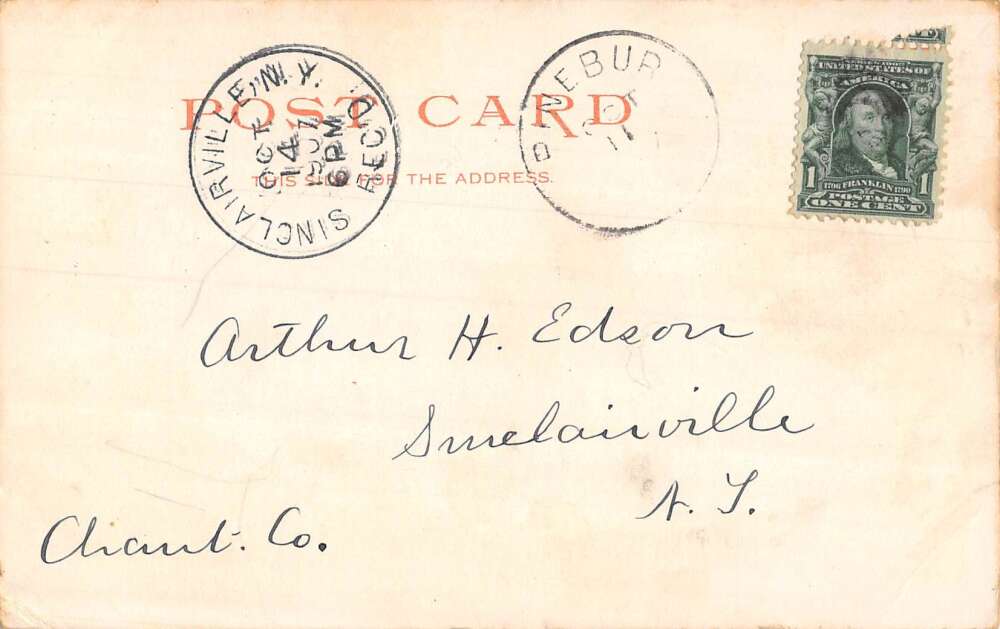 POST CARD
THIS SIDE FOR THE ADDRESS.
SINCLAIRVILLE, N.Y.
OCT
14
6 PM
REC'D.
EBUR
SERIES 1902
UNITED STATES OF
AMERICA
1706 FRANKLIN 1790
1 POSTAGE 1
ONE CENT
Arthur H. Edson
Sinclairville
N. Y.
Chaut. Co.